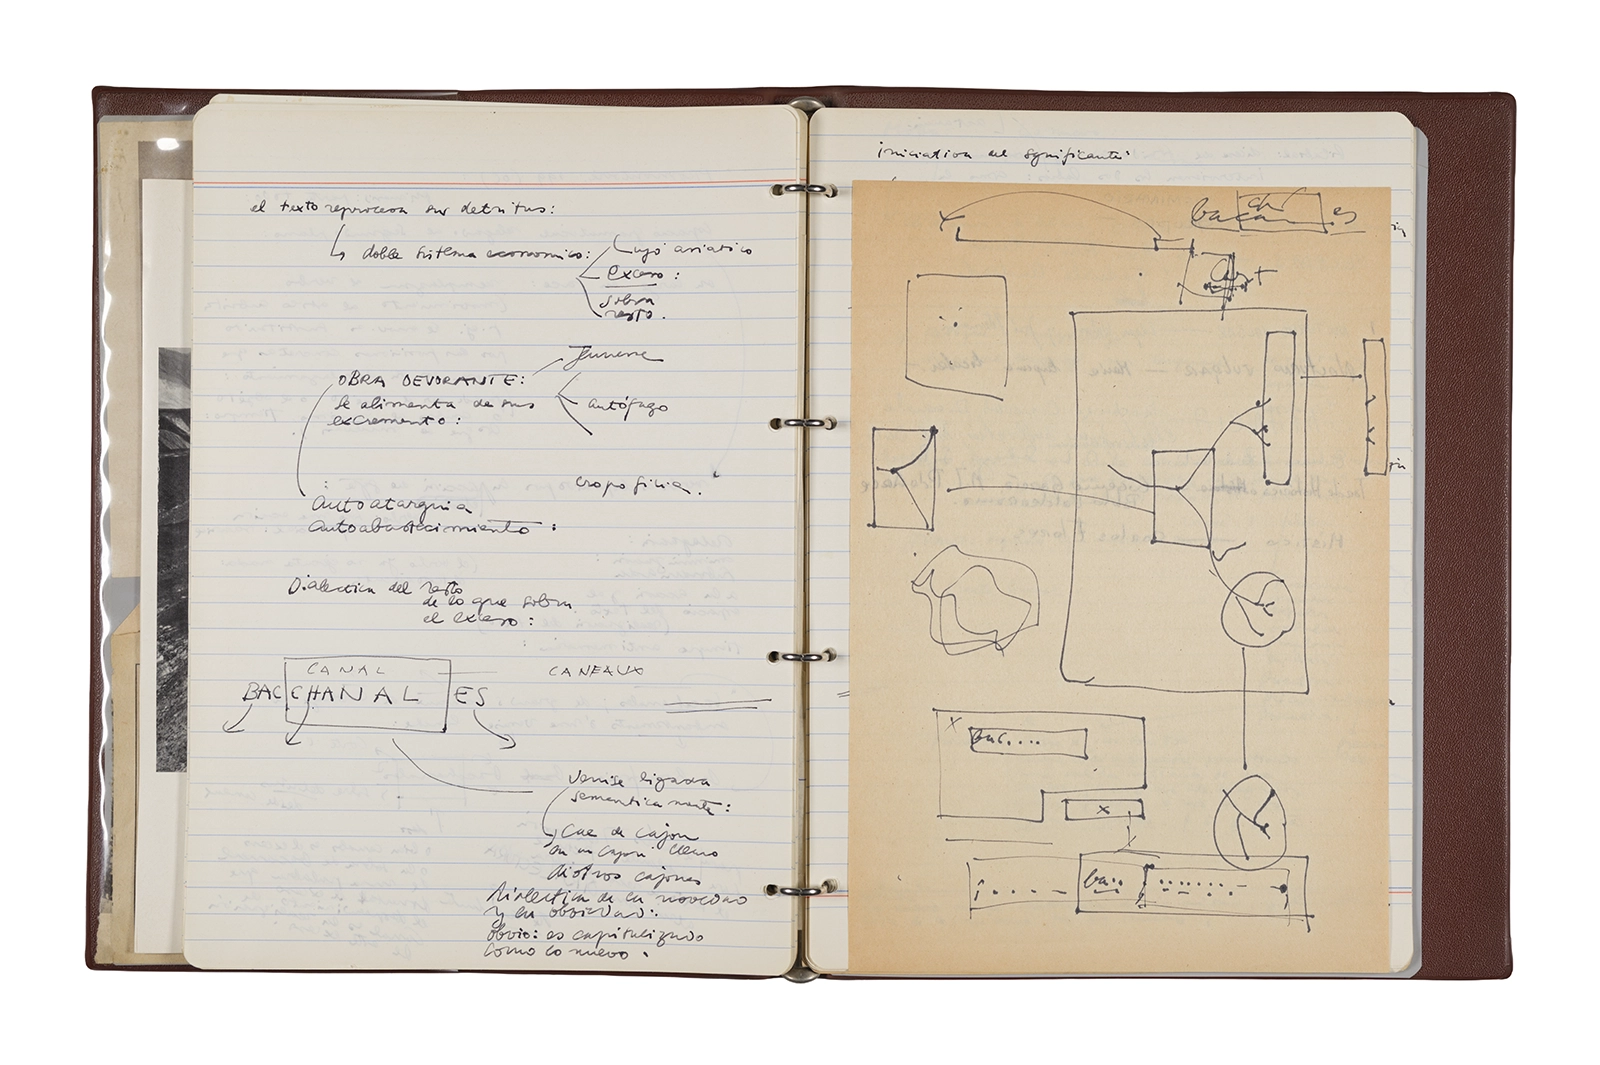 el texto reprocesa sus detritus:
doble sistema economico:
Lujo asiatico
exceso:
sobra
resto.
OBRA DEVORANTE:
se alimenta de sus
excremento:
autófago
cropofilia.
Autoatarquia
Autoabastecimiento:
Dialectica del resto
de lo que sobra
el exceso:
CANAL
CANEAUX
BACCHANAL ES
Venise ligada
semanticamente:
Cae de cajon
en un cajon lleno
de otros cajones
dialectica de la novedad
y la obviedad:
obvio: es capitalizado
como lo nuevo.
iniciation del significante:
chi
baca es
bac....
x
x
ba..